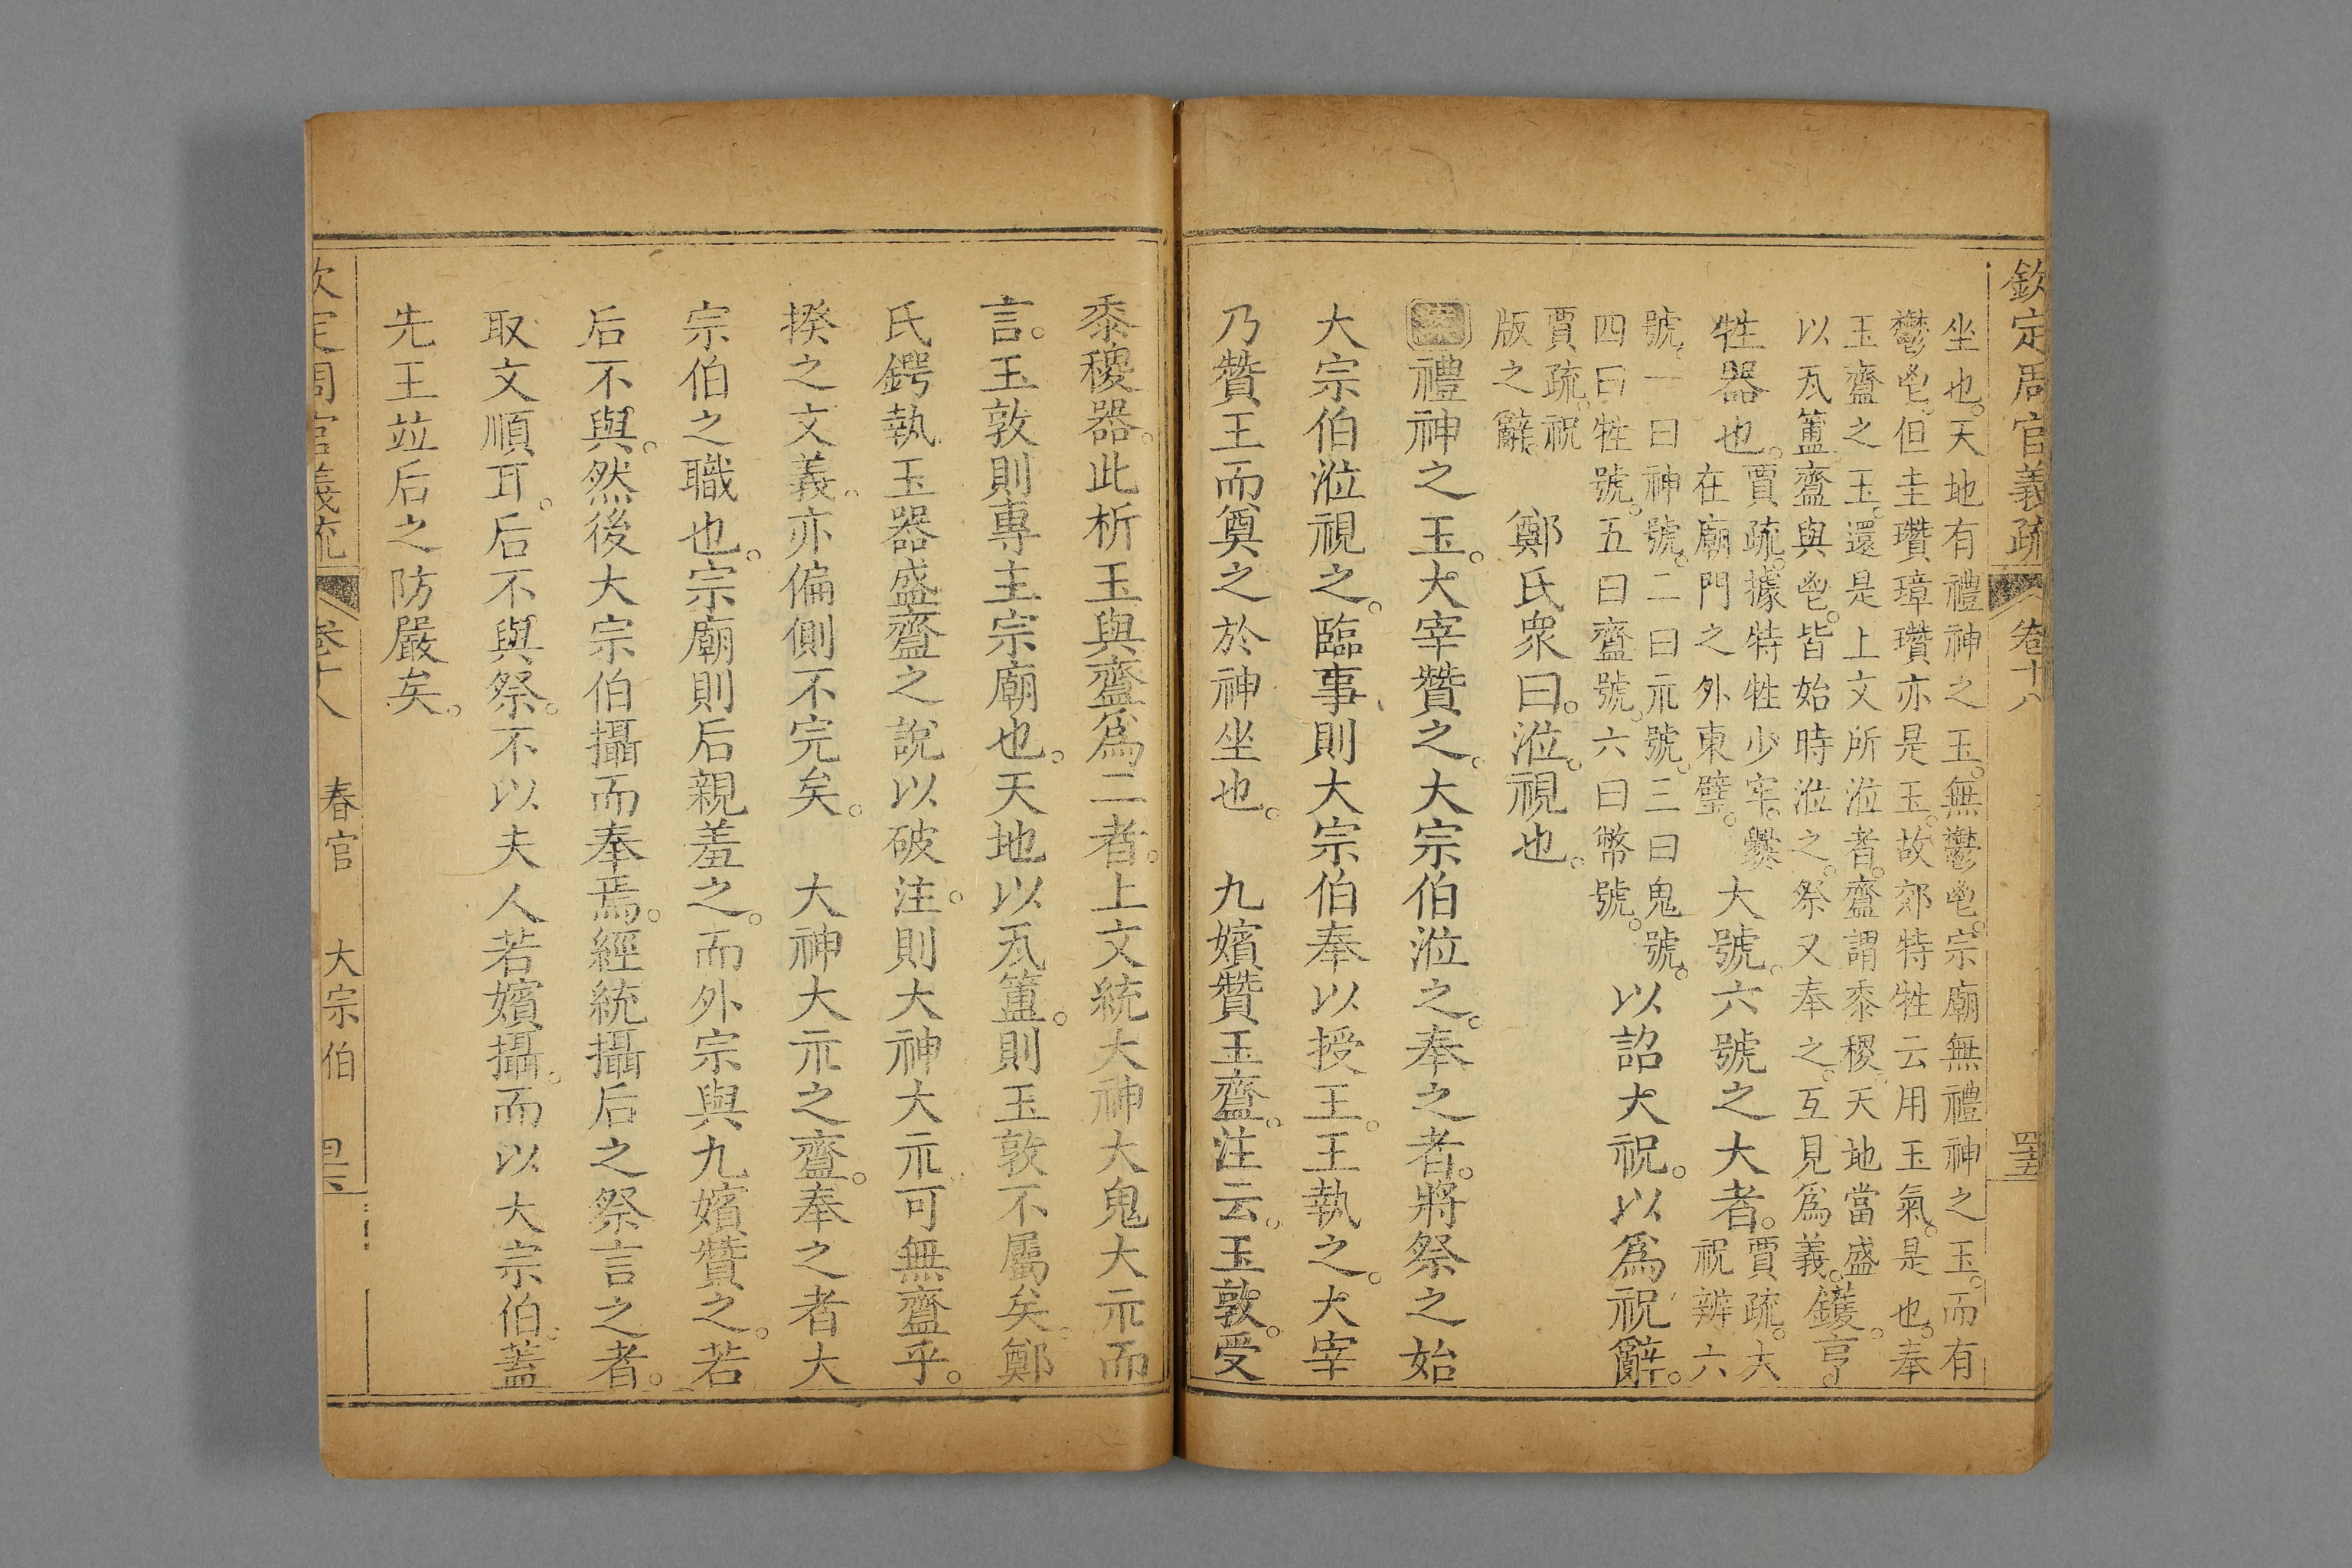 欽定周官義疏 卷十八 四五
坐也。天地有禮神之玉。無鬱鬯。宗廟無禮神之玉。而有
鬱鬯。但圭瓚璋瓚亦是玉。故郊特牲云用玉氣。是也。奉
玉齍之玉。還是上文所涖者。齍謂黍稷。天地當盛
以瓦簠。齍與鬯。皆始時涖之。祭又奉之。互見爲義。
鑊。亨
牲器也。
賈疏。據特牲少牢。爨
在廟門之外東壁。
大號。六號之大者。
賈疏。大
祝辨六
號。一曰神號。二曰示號。三曰鬼號。
四曰牲號。五曰齍號。六曰幣號。
以詔大祝。以爲祝辭。
賈疏。祝
版之辭。
鄭氏衆曰。涖。視也。
禮神之玉。大宰贊之。大宗伯涖之。奉之者。將祭之始
大宗伯涖視之。臨事則大宗伯奉以授王。王執之。大宰
乃贊王而奠之於神坐也。 九嬪贊玉齍。注云。玉敦。受
黍稷器。此析玉與齍爲二者。上文統大神大鬼大示而
言。玉敦則專主宗廟也。天地以瓦簠。則玉敦不屬矣。鄭
氏鍔執玉器盛齍之說以破注。則大神大示可無齍乎。
揆之文義。亦偏側不完矣。 大神大示之齍。奉之者大
宗伯之職也。宗廟則后親羞之。而外宗與九嬪贊之。若
后不與。然後大宗伯攝而奉焉。經統攝后之祭言之者。
取文順耳。后不與祭。不以夫人若嬪攝。而以大宗伯。蓋
先王竝后之防嚴矣。
欽定周官義疏 卷十八 春官 大宗伯